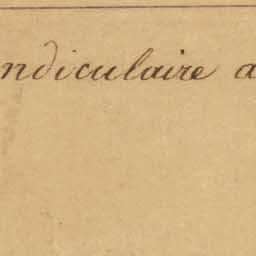 ndiculaire a